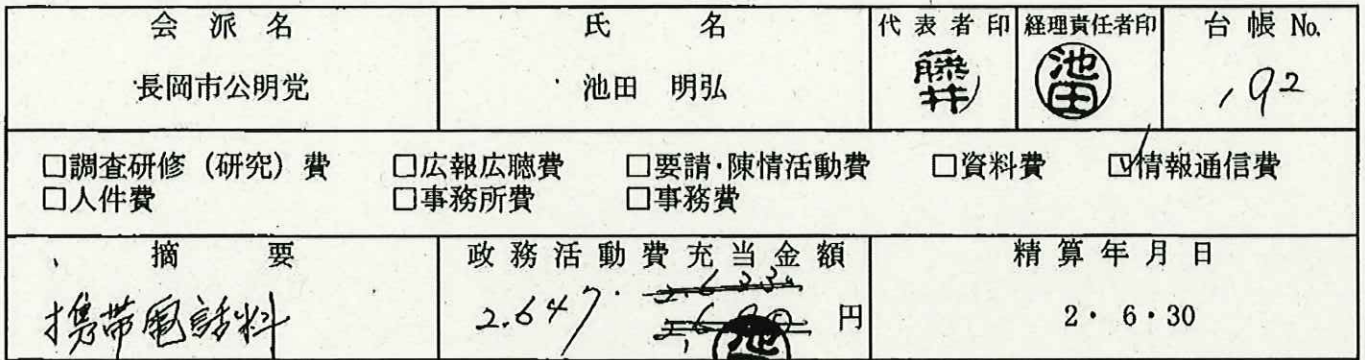 会派名 氏名 代表者印 経理責任者印 台帳No.
長岡市公明党 池田 明弘 藤井 池田 192
□調査研修（研究）費 □広報広聴費 □要請・陳情活動費 □資料費 ☑情報通信費
□人件費 □事務所費 □事務費
摘要 政務活動費充当金額 精算年月日
携帯電話料 2.647 円 2・6・30
池